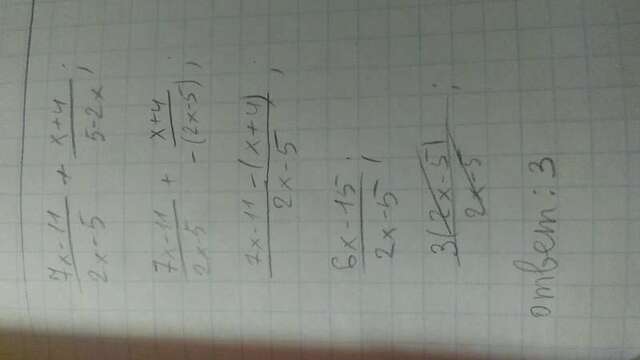 (7x-11)/(2x-5) + (x+4)/(5-2x);
(7x-11)/(2x-5) + (x+4)/(-(2x-5));
(7x-11-(x+4))/(2x-5);
(6x-15)/(2x-5);
(3(2x-5))/(2x-5);
ответ: 3